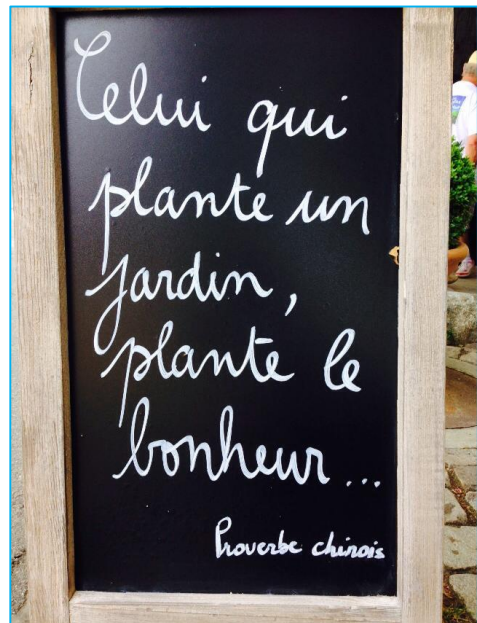 Celui qui
plante un
jardin,
plante le
bonheur...
Proverbe chinois